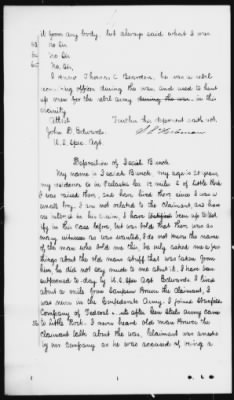 it from any body, but always said what I was
63 No Sir
64 No Sir
65 No Sir,
I know Thomas C. Reardon, he was a rebel
officer during the war, and used to hunt
up men for the rebel army during the war in this
vicinity
Attest Further this deponent saith not,
John D. Edwards
U.S. Spec. Agt.
Deposition of Isaiah Burch
My name is Isaiah Burch, my age is 51 years,
my residence is in Pulaski Co. 12 miles of Little Rock
I was raised there, and have lived there since I was a
small boy, I am not related to the Claimant, and have
no interest in his Claim, I have been up to test
ify in this case before, but was told that there was as
many witnesses as was wanted, I do not know the name
of the man who told me this he only asked me a few
things about the old mans stuff that was taken from
him, he did not say much to me about it, I have been
to-day by U.S. Spec. Agt. Edwards. I lived
about a mile from the Claimant, I
was never in the Confederate Army. I joined
Company of Federal after Gen Steels Army came
to Little Rock. I never heard old man the
Claimant talk about the war, Claimant was
by his Company as he was accused of being a